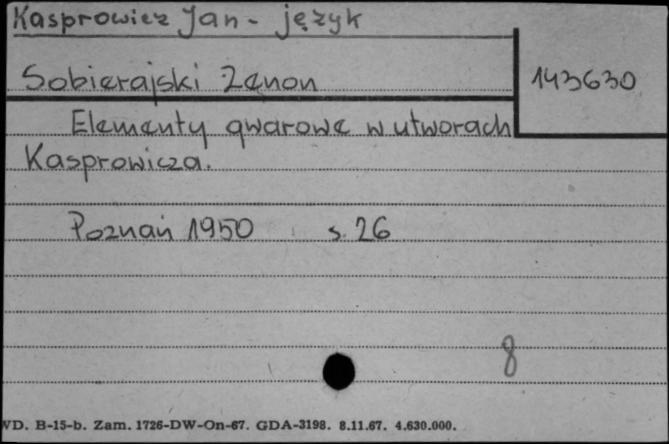 Kasprowicz Jan - język
Sobierajski Zenon
143630
Elementy gwarowe w utworach
Kasprowicza.
Poznań 1950 s. 26
8
WD. B-15-b. Zam. 1726-DW-On-67. GDA-3198. 8.11.67. 4.630.000.